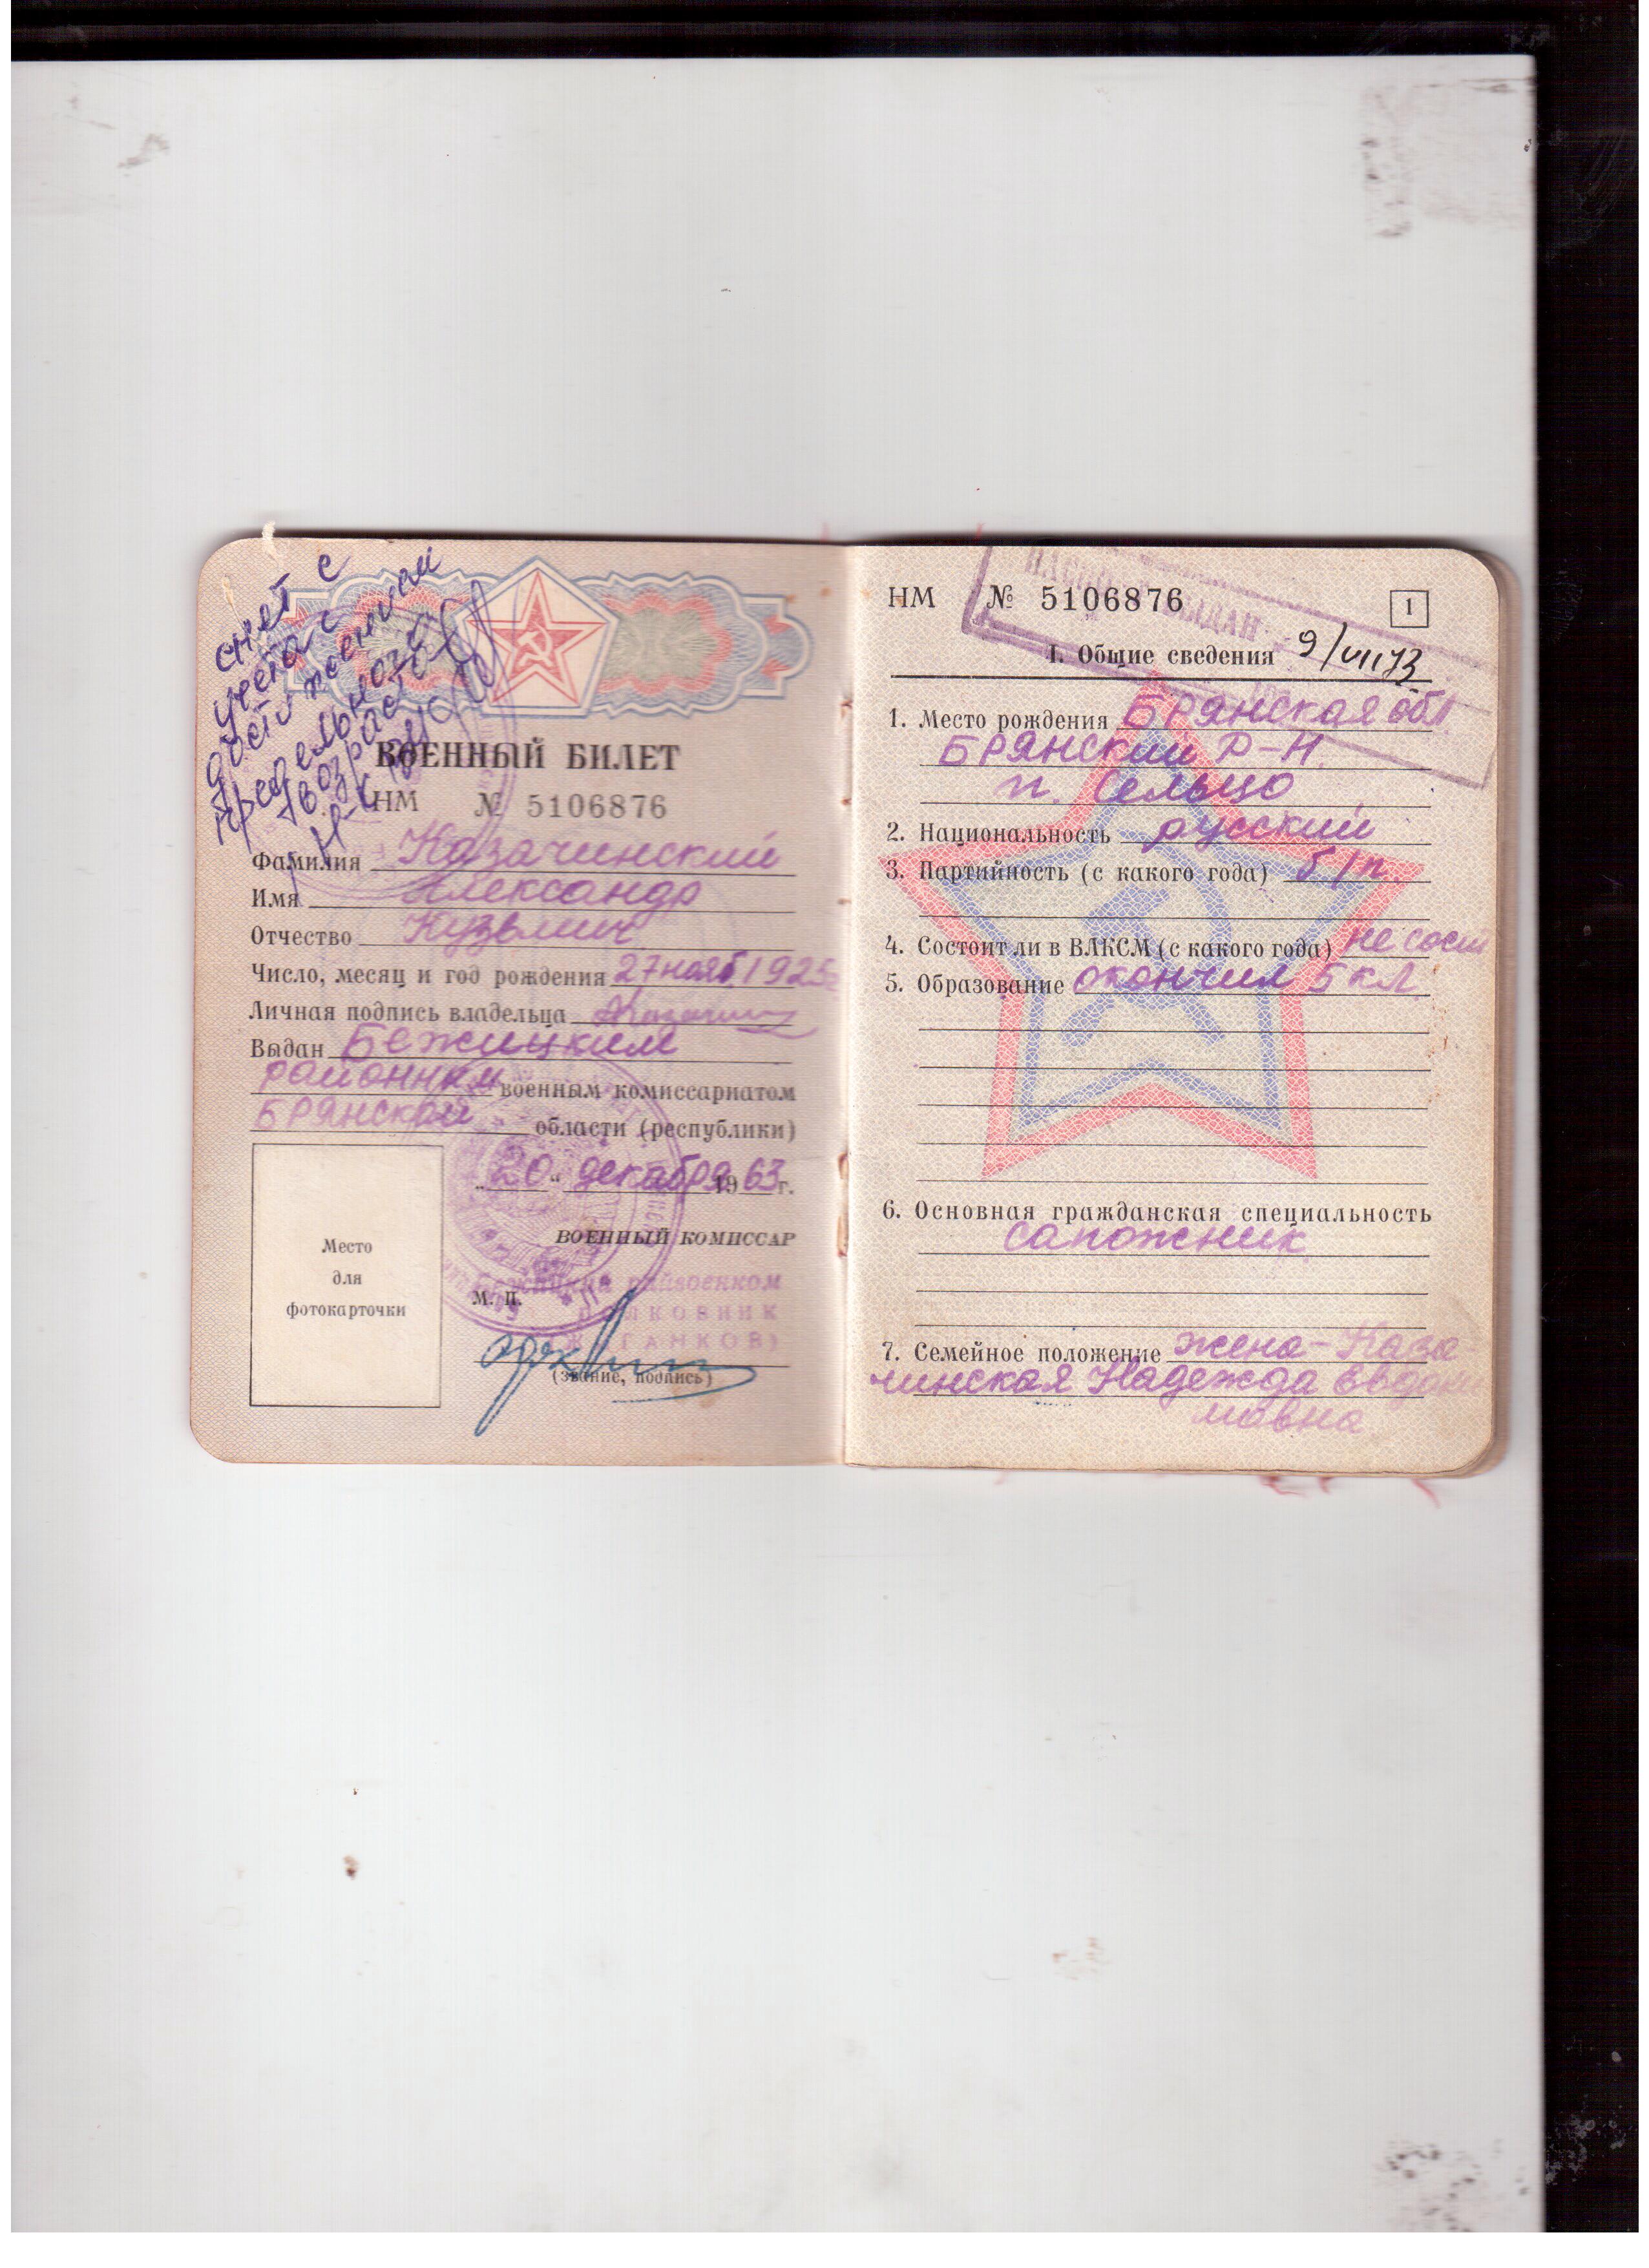 снят с
учета с
достижением
предельного
возраста
ВОЕННЫЙ БИЛЕТ
НМ № 5106876
Фамилия Казачинский
Имя Александр
Отчество Кузьмич
Число, месяц и год рождения 27 нояб. 1925
Личная подпись владельца
Выдан Бежицким
районным военным комиссариатом
Брянской области (республики)
„20“ декабря 1963 г.
ВОЕННЫЙ КОМИССАР
Место
для
фотокарточки
М. П.
райвоенком
ПОЛКОВНИК
(звание, подпись)
НМ № 5106876
1
ВЫДАН
I. Общие сведения 9/VII 73
1. Место рождения Брянская обл
Брянский р-н.
п. Сельцо
2. Национальность русский
3. Партийность (с какого года) б/п.
4. Состоит ли в ВЛКСМ (с какого года) не сост
5. Образование окончил 5 кл
6. Основная гражданская специальность
сапожник
7. Семейное положение жена - Каза-
чинская Надежда